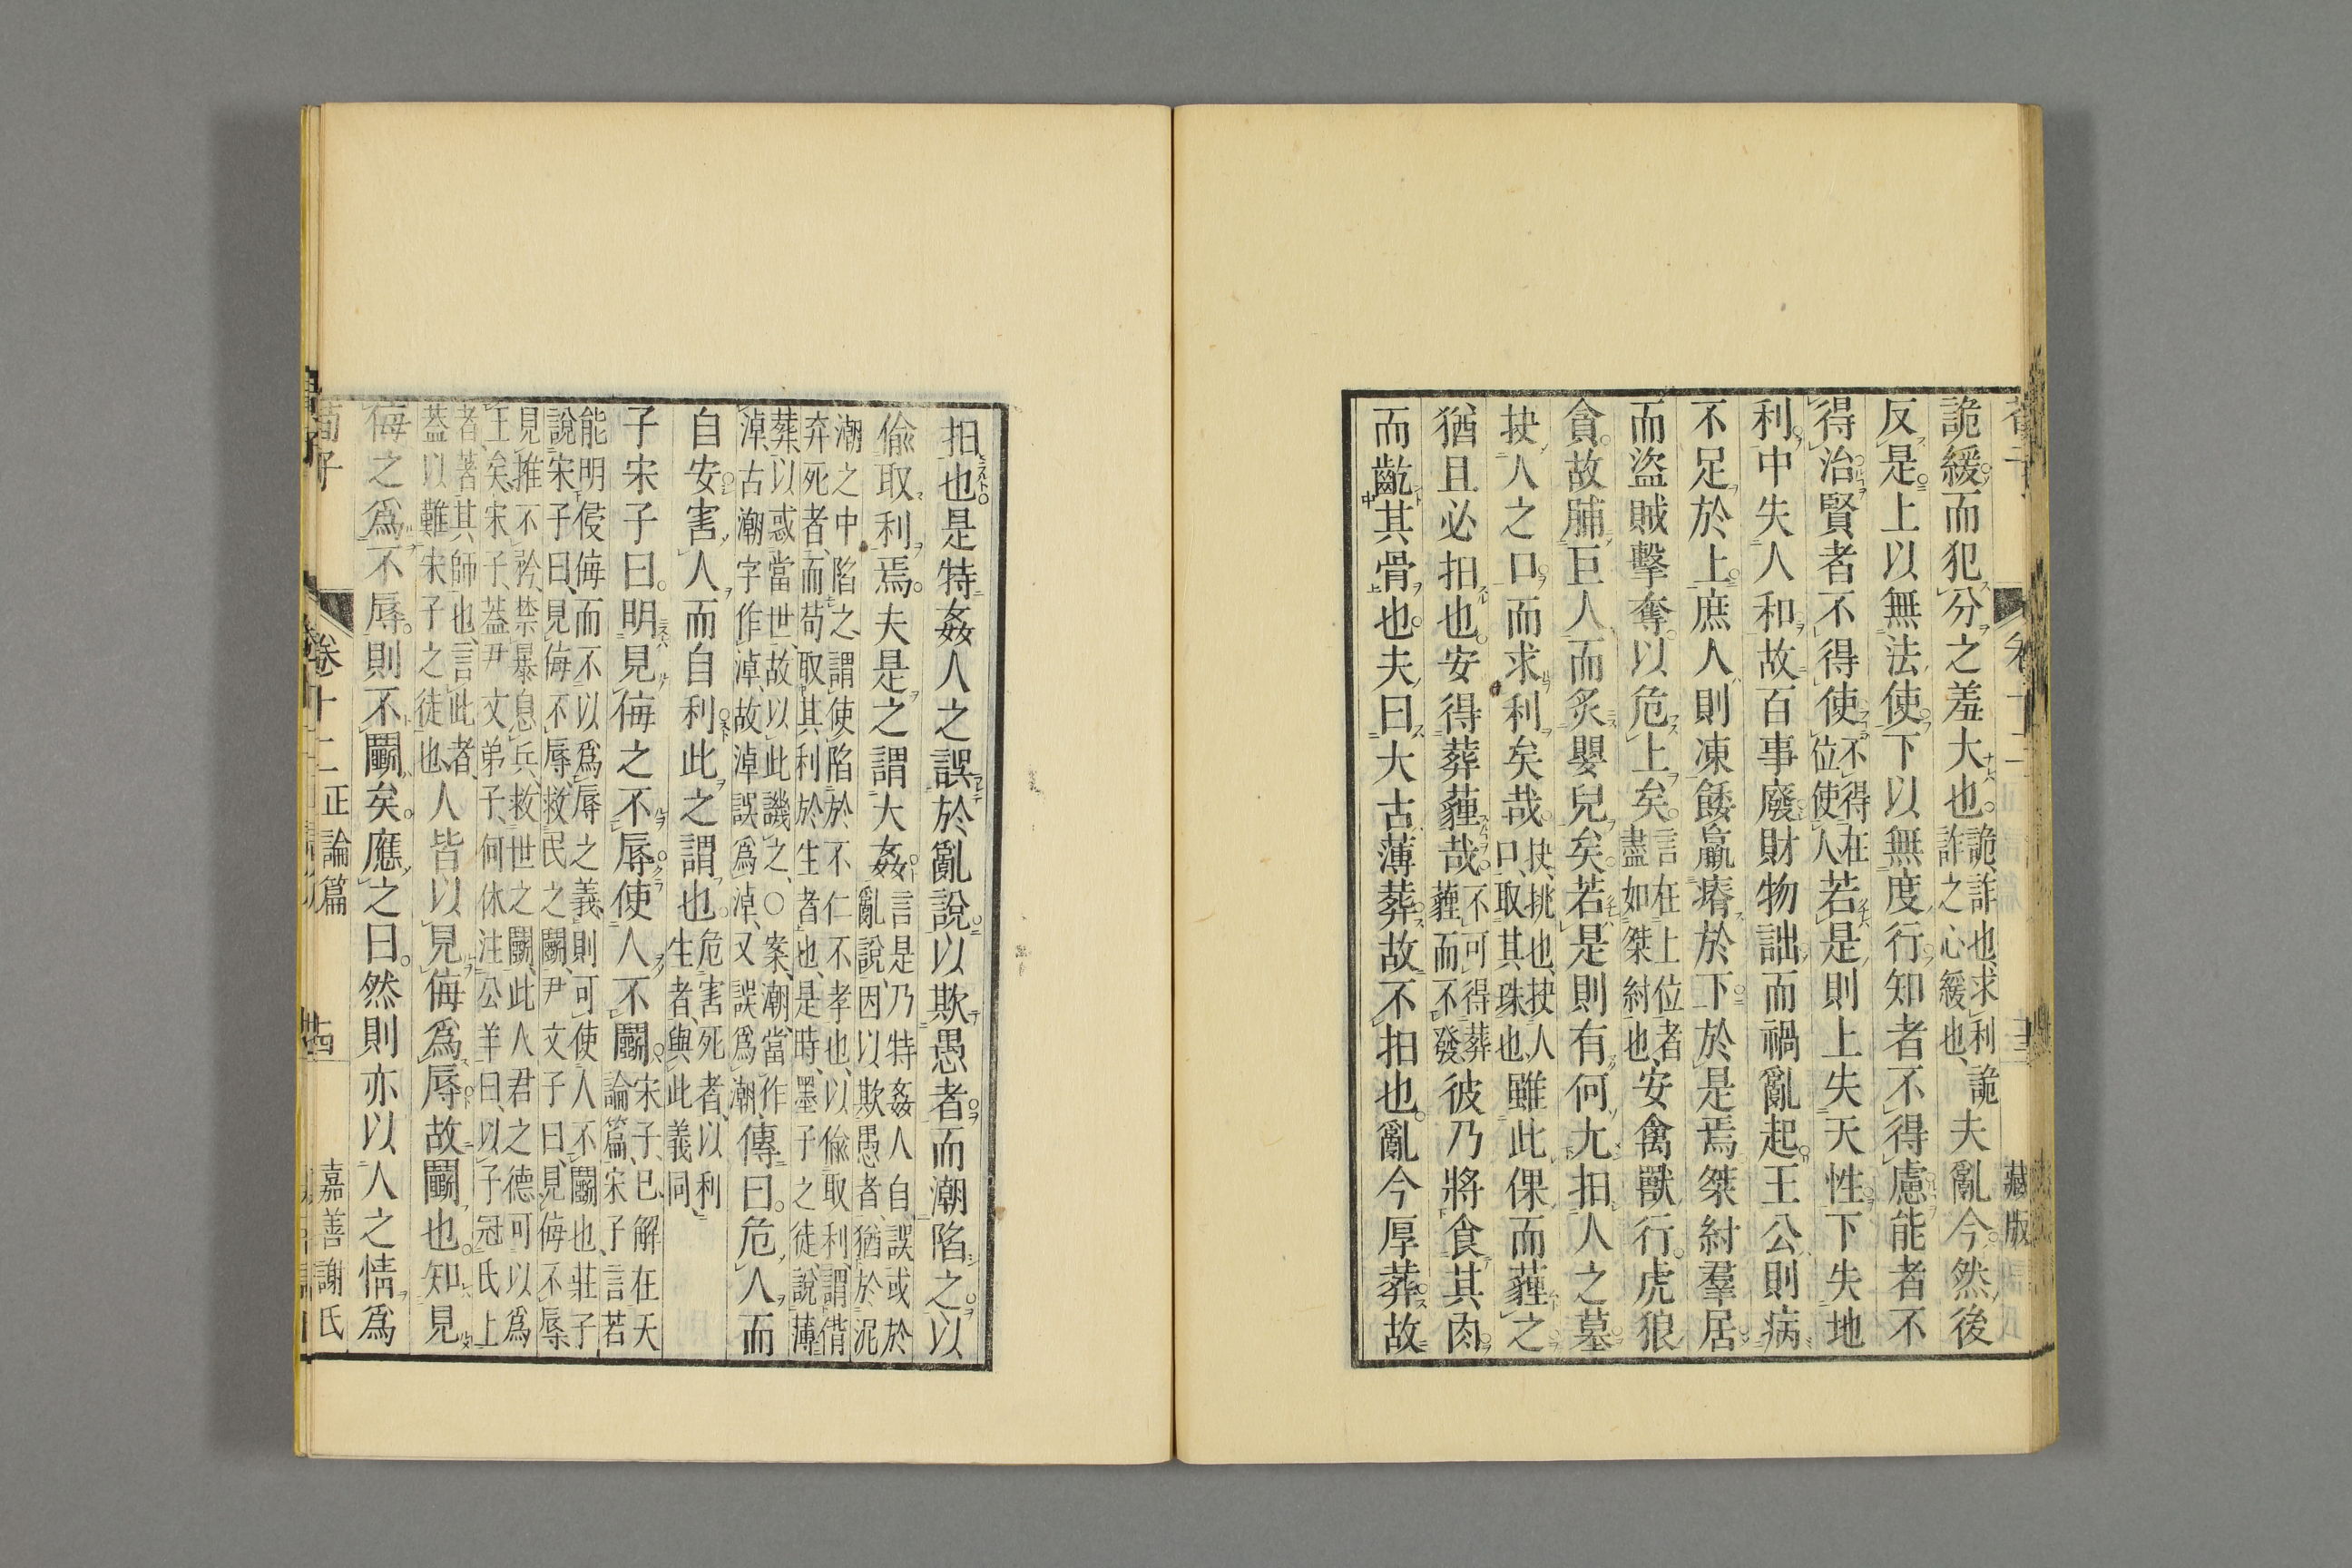 詭緩而犯分之羞大也詭詐也求利詭
詐之心緩也夫亂今然後
反是上以無法使下以無度行知者不得慮能者不
得治賢者不得使不得在
位使人若是則上失天性下失地
利中失人和故百事廢財物詘而禍亂起王公則病
不足於上庶人則凍餧羸瘠於下於是焉桀紂羣居
而盜賊擊奪以危上矣言在上位者
盡如桀紂也安禽獸行虎狼
貪故脯巨人而炙嬰兒矣若是則有何尤扣人之墓
抉人之口而求利矣哉抉挑也抉人
口取其珠也雖此倮而薶之
猶且必扣也安得葬薶哉不可得葬
薶而不發彼乃將食其肉
而齕其骨也夫曰大古薄葬故不扣也亂今厚葬故
藏版
扣也是特姦人之誤於亂說以欺愚者而潮陷之以
偸取利焉夫是之謂大姦言是乃特姦人自誤或於
亂說因以欺愚者猶於泥
潮之中陷之謂使陷於不仁不孝也以偸取利謂偝
弃死者而苟取其利於生者也是時墨子之徒說薄
葬以惑當世故以此譏之○案潮當作
淖古潮字作淖故淖誤爲淖又誤爲潮傳曰危人而
自安害人而自利此之謂也危害死者以利
生者與此義同
子宋子曰明見侮之不辱使人不鬬宋子已解在天
論篇宋子言若
能明侵侮而不以爲辱之義則可使人不鬬也莊子
說宋子曰見侮不辱救民之鬬尹文子曰見侮不辱
見推不矜禁暴息兵救世之鬬此人君之德可以爲
王矣宋子蓋尹文弟子何休注公羊曰以子冠氏上
者著其師也言此者
蓋以難宋子之徒也人皆以見侮爲辱故鬬也知見
侮之爲不辱則不鬬矣應之曰然則亦以人之情爲
荀子
卷十二正論篇
十四
嘉善謝氏